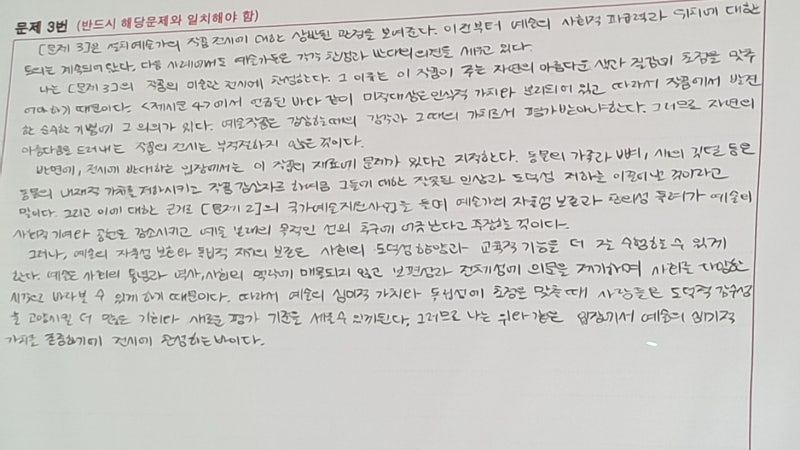 문제 3번 (반드시 해당문제와 일치해야 함)
[문제 3]은 설치예술가의 작품전시에 대한 상반된 관점을 보여준다. 이전부터 예술의 사회적 파급력과 위치에 대한
논의는 계속되어 왔다. 다음 사례에서도 예술가들은 각각 찬성과 반대의 의견을 세우고 있다.
나는 [문제 3]의 작품의 미술관 전시에 찬성한다. 그 이유는 이 작품이 주는 자연의 아름다운 색과 질감에 초점을 맞추
어야 하기 때문이다. <제시문 4>에서 언급된 바와 같이 미적대상은 인식적 가치와 분리되어 있고 따라서 작품에서 발견
한 기법에 그 의의가 있다. 예술작품은 감상할때의 감각과 그 때의 가치로서 평가받아야한다. 그러므로 자연의
아름다움을 드러내는 작품의 전시는 부적절하지 않은 것이다.
반면에, 전시에 반대하는 입장에서는 이 작품의 재료에 문제가 있다고 지적한다. 동물의 가죽과 뼈, 새의 깃털 등은
동물의 내재적 가치를 저하시키고 작품 감상자로 하여금 그들에 대한 잘못된 인상과 도덕성 저하를 이끌어낼 것이라고
말이다. 그리고 이에 대한 근거로 [문제 2]의 국가예술지원사업을 들며 예술가의 자율성 보존과 편의성 논리가 예술의
사회적 기여와 공헌을 감소시키고 예술 본래의 목적인 선의 추구에 어긋난다고 주장할 것이다.
그러나, 예술의 자율성 보호와 독립적 지위의 보존은 사회의 도덕성 함양과 교육적 기능을 더 잘 수행할 수 있게
한다. 예술은 사회의 통념과 역사, 사회의 맥락에 매몰되지 않고 보편성과 전제성에 의문을 제기하며 사회를 다양한
시각으로 바라볼 수 있게 하기 때문이다. 따라서 예술의 심미적 가치와 특성에 초점을 맞출때 사람들은 도덕적 감수성
을 고양시킬 더 많은 기회와 새로운 평가 기준을 세울 수 있게된다. 그러므로 나는 위와 같은 입장에서 예술의 심미적
가치를 존중하기에 전시에 찬성하는 바이다.